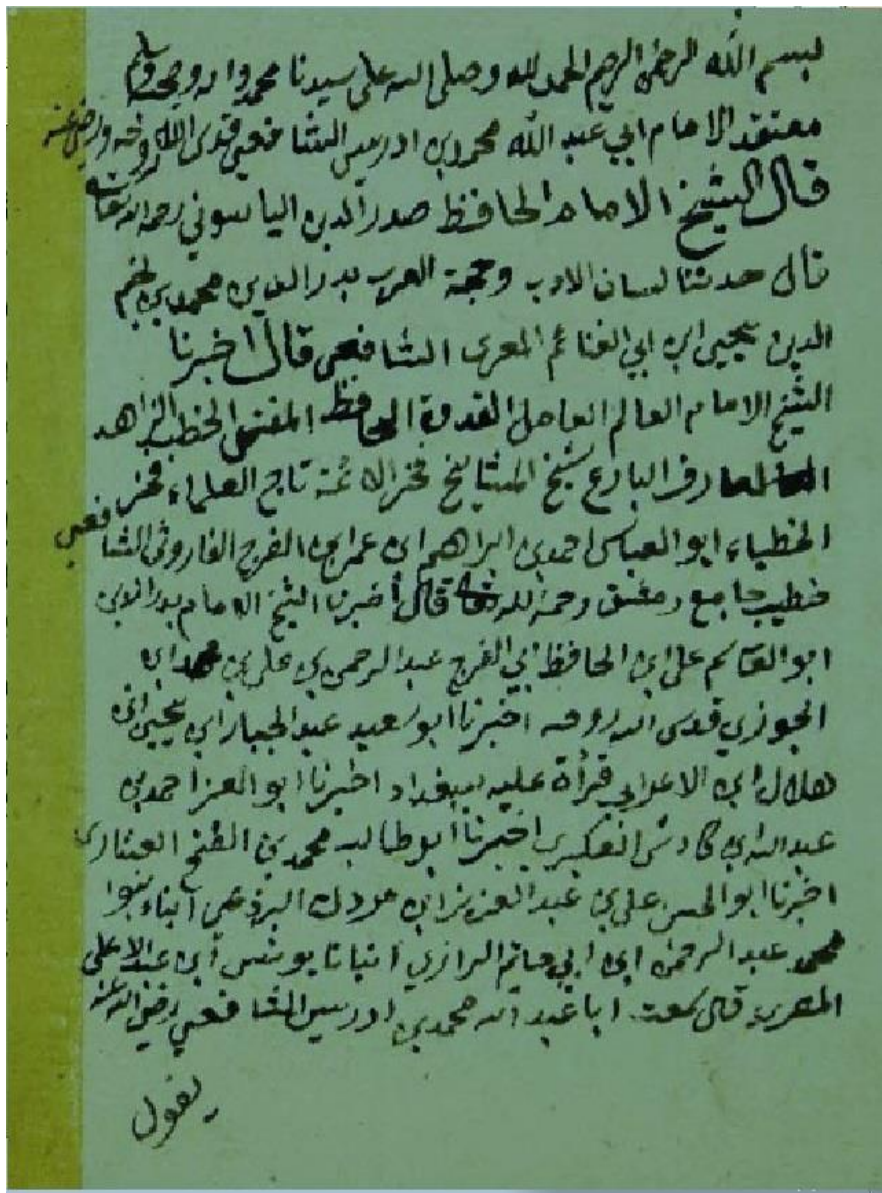 بسم الله الرحمن الرحيم الحمد لله وصلى الله على سيدنا محمد واله وصحبه وسلم
معتقد الامام ابي عبد الله محمد بن ادريس الشافعي قدس الله روحه ورضي عنه
قال الشيخ الامام الحافظ صدر الدين الياسوني رحمه الله تعالى
قال حدثنا لسان الادب وحجة العرب بدر الدين محمد بن نجم
الدين يحيى ابن ابي الغنائم المعرى الشافعي قال اخبرنا
الشيخ الامام العالم العامل القدوة الحافظ المفتي الخطيب الزاهد
العارف البارع شيخ المشايخ فخر الائمة تاج العلماء فخر
الخطباء ابو العباس احمد بن ابراهيم ابن عمر ابن الفرج الفاروثي الشافعي
خطيب جامع دمشق رحمه الله تعالى قال أخبرنا الشيخ الامام بدر الدين
ابو القاسم علي ابن الحافظ ابي الفرج عبد الرحمن بن علي بن محمد ابن
الجوزي قدس الله روحه اخبرنا ابو سعيد عبد الجبار ابن يحيى ابن
هلال ابن الاعرابي قرأة عليه ببغداد اخبرنا ابو العز احمد بن
عبد الله بن كادش العكبري اخبرنا ابو طالب محمد بن الفتح العشاري
اخبرنا ابو الحسن علي بن عبد العزيز ابن مردك البرذعي انباء نبوا
محمد عبد الرحمن ابن ابي حاتم الرازي انبانا يونس ابن عبد الاعلى
المصري قال سمعت ابا عبد الله محمد بن ادريس الشافعي رضي الله عنه
يقول